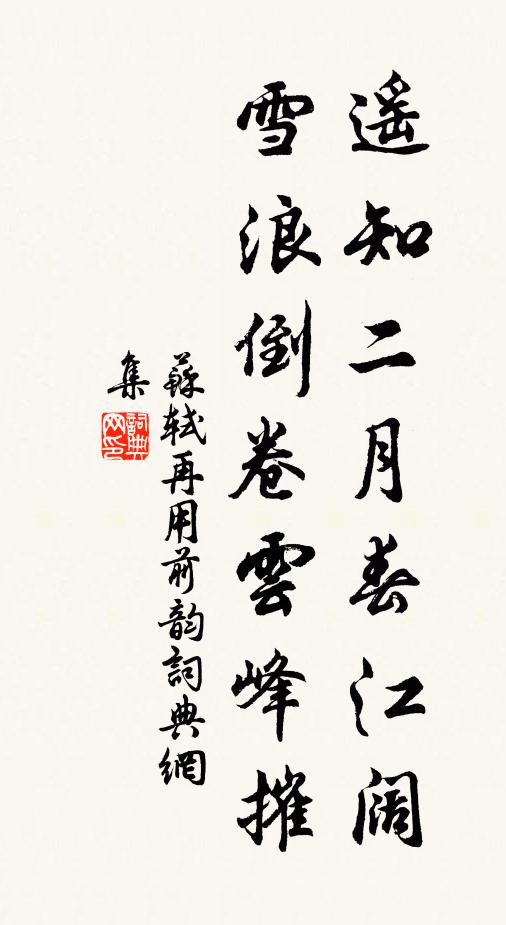 遥知二月春江阔
雪浪倒卷雲峰摧
蘇軾再用前韵詞典網
集
詞典網印